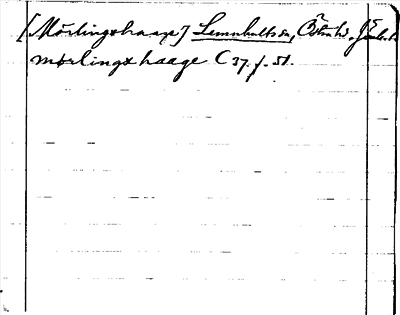 [Mörlingxhaage] Lemnhults sn, Östra hd,
mörlingx haage C 37. f. 51.